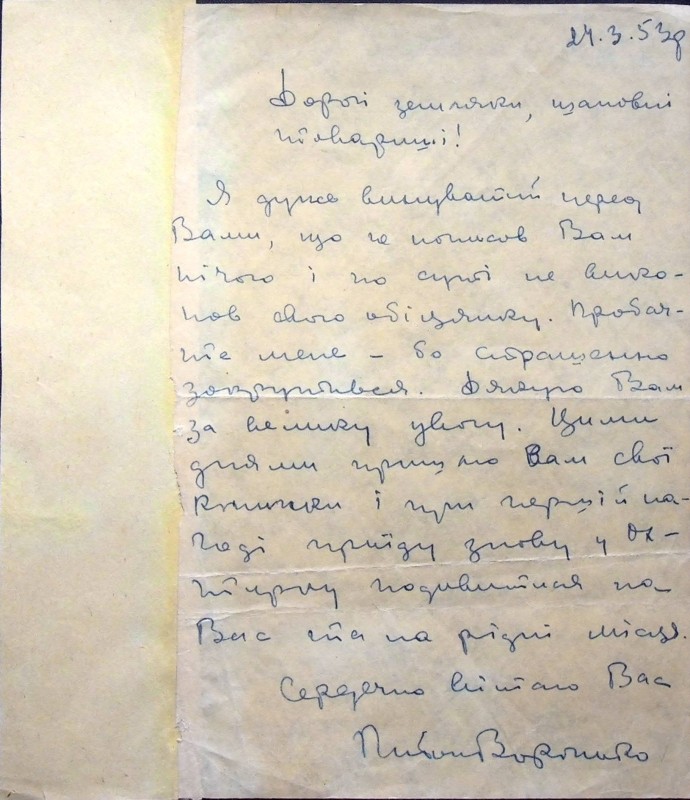 24.3.53р
Дорогі земляки, шановні
товариші!
Я дуже винуватий перед
Вами, що не написав Вам
нічого і по суті не вико-
нав свого обіцянку. Пробач-
те мене – бо страшенно
закрутився. Дякую Вам
за велику увагу. Цими
днями пришлю Вам свої
книжки і при першій на-
годі приїду знову у Ох-
тирку подивитися на
Вас та на рідні місця.
Сердечно вітаю Вас
Платон Воронько